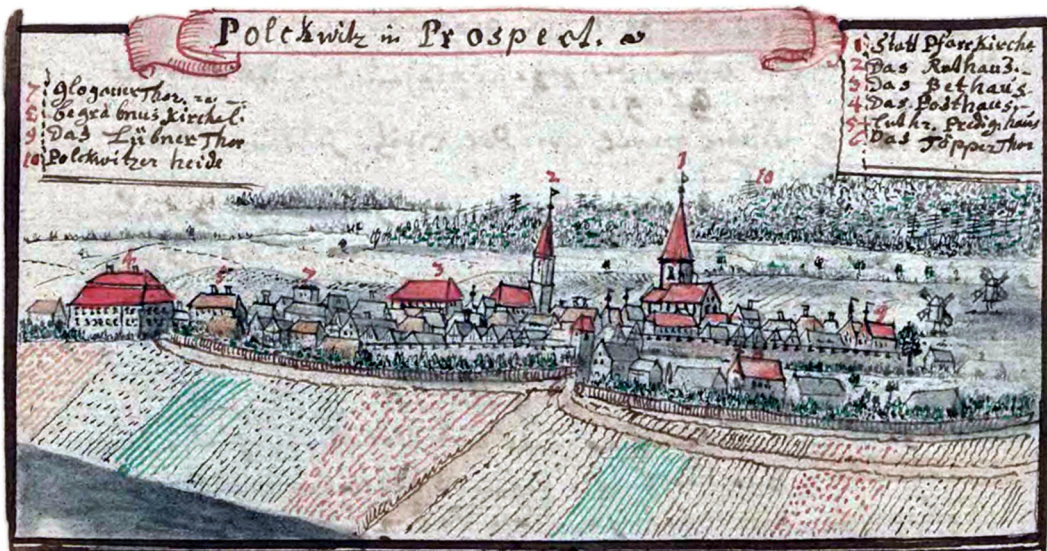 Polckwitz in Prospect.
7 Glogauer Thor.
8 begräbnus Kirchel.
9 Das Lübner Thor
10 Polckwitzer heide
1 Statt Pfarrkirche
2 Das Rathauß.
3 Das Bethaus
4 Das Posthaus.
5 Luthr. Predig. haus
6 Das Töpper Thor
2
1
10
4
5
7
3
9